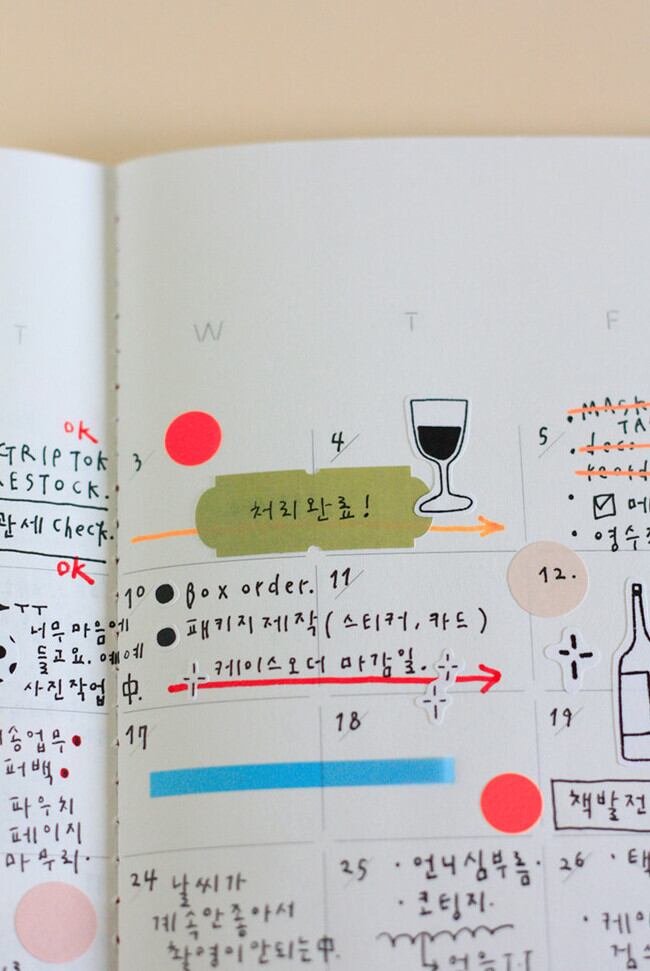 T
W
T
F
OK
TRIP TOK
RESTOCK.
관세 check.
OK
ㅜㅜ
너무 마음에
들고요. 예예
사진작업 中.
송업무
퍼백
파우치
페이지
마무리.
3
4
처리완료!
5
MASK
TA
☑ 메
10
Box order.
11
패키지제작(스티커, 카드)
케이스오더 마감일.
12.
17
18
19
책발전
24 날씨가
계속안좋아서
촬영이안되는中.
25
· 언니심부름.
· 코팅지.
26
· 택
· 케이